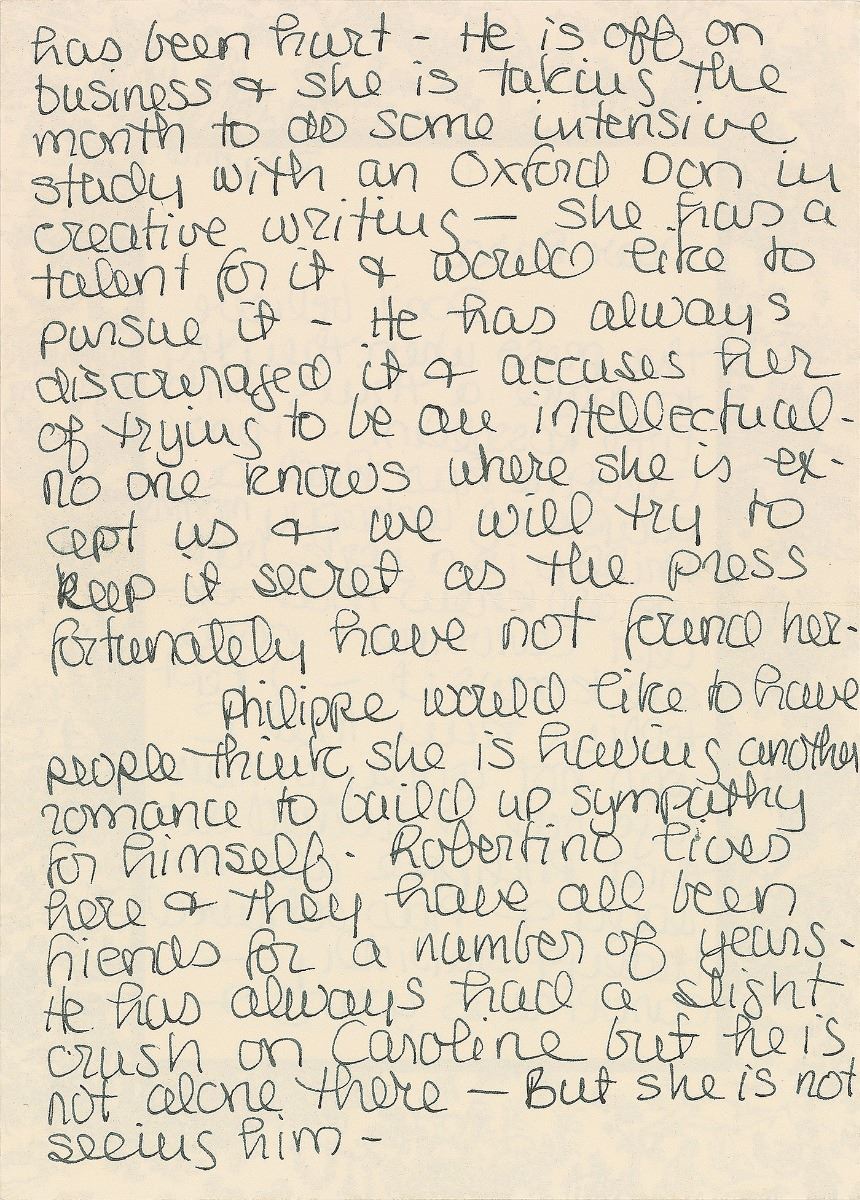 has been hurt - He is off on
business & she is taking the
month to do some intensive
study with an Oxford Don in
creative writing — She has a
talent for it & would like to
pursue it - He has always
discouraged it & accuses her
of trying to be an intellectual -
no one knows where she is ex-
cept us & we will try to
keep it secret as the press
fortunately have not found her -
Philippe would like to have
people think she is having another
romance to build up sympathy
for himself. Robertino lives
here & they have all been
friends for a number of years -
He has always had a slight
crush on Caroline but he is
not alone there — But she is not
seeing him -